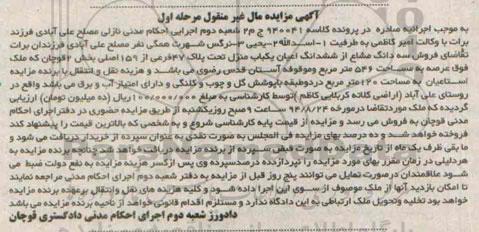 آگهی مزایده مال غیر منقول مرحله اول
به موجب اجرائیه صادره در پرونده کلاسه ۹۴۰۰۴۱ ج م۲ شعبه دوم اجرایی احکام مدنی نازلی مصلح علی آبادی فرزند
برات با وکالت امیر کاظمی به طرفیت ۱-اسدالله ۲-یحیی ۳-نرگس شهرت همگی نفر مصلح علی آبادی فرزندان برات
تقاضای فروش سه دانگ مشاع از ششدانگ اعیان یکباب منزل تحت پلاک ۴۷فرعی از ۱۵۹اصلی بخش ۲قوچان که ملک
فوق عرصه به مساحت ۵۴۶ متر مربع وموقوفه آستان قدس رضوی می باشد و هزینه نقل و انتقال با برنده مزایده
است اعیان به مساحت ۱۲۰متر مربع در دوطبقه باپوشش گل و چوب و کلنگی و دارای امتیاز آب و برق می باشد واقع در
روستای علی آباد (اراضی کلاته کربلایی کاظم )توسط کارشناسی به مبلغ ۱۰۰/۰۰۰/۰۰۰ریال (ده میلیون تومان) ارزیابی
گردیده که ملک موردتقاضا درمورخه ۹۴/۸/۲۴ ساعت ۹صبح روزیکشنبه از طریق مزایده حضوری در دفتر اجرای احکام
مدنی قوچان به فروش می رسد و مزایده از قیمت پایه کارشناسی شروع و به شخصی که بالاترین قیمت را پیشنهاد کند
فروخته خواهد شد و ده درصد بهای مزایده فی المجلس به صورت نقدی به عنوان سپرده از خریدار دریافت می شود و
ما بقی ظرف یک ماه از تاریخ مزایده به صورت فیش سپرده از برنده مزایده دریافت خواهد شد چنانچه برنده مزایده به
هر دلیلی در زمان مقرر بهای مورد مزایده را نپردازد ده درصد سپرده وی پس از کسر هزینه مزایده به نفع دولت ضبط می
شود علاقمندان در صورت تمایل می توانند پنج روز قبل از مزایده به دفتر شعبه دوم اجرای احکام مدنی مراجعه نمایند
تا امکان بازدید آنها از ملک موصوف از سوی این اجرا داده شود و کلیه هزینه های نقل وانتقال برعهده برنده مزایده
خواهد بود تخلیه وتحویل ملک ارتباطی به این دادگاه ندارد و مستلزم اقدام قانونی خواهد از ناحیه برنده مزایده می باشد
دادورز شعبه دوم اجرای احکام مدنی دادگستری قوچان